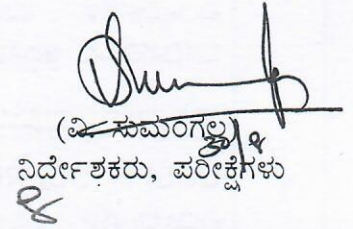 (ವಿ. ಸುಮಂಗಲ)
30/8
ನಿರ್ದೇಶಕರು, ಪರೀಕ್ಷೆಗಳು